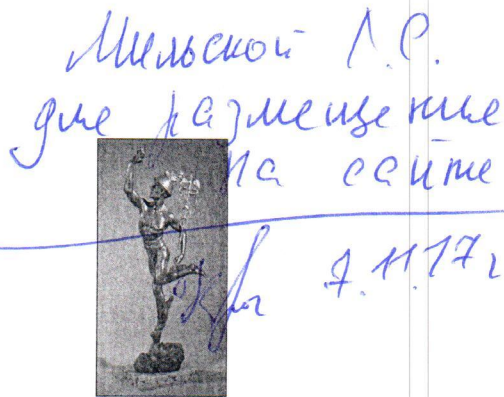 Мильской Л.С.
для размещения
на сайте
7.11.17г